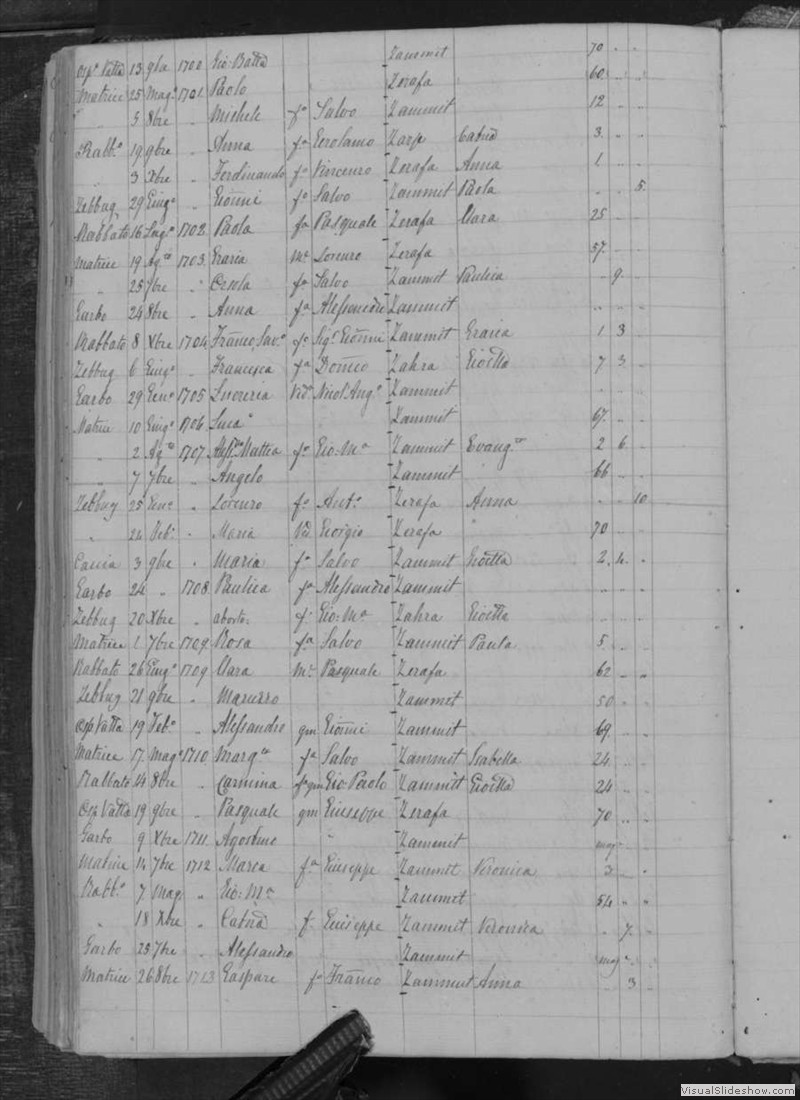 Osp. Vatta 13 9bre 1700 Gio: Batta Zammit 70 " "
Matrice 25 Mag.o 1701 Paolo Zerafa 60 " "
" 5 8bre " Michele f.o Salvo Zammit 12 " "
Rabb.o 19 9bre " Anna f.a Gerolamo Catna 3 " "
" 3 Xbre " Ferdinando f.o Vincenzo Zerafa Anna 1 " "
Zebbug 29 Giug.o " Gioñni f.o Salvo Zammit Paola " " 5
Rabbato 16 Lug.o 1702 Paola f.a Pasquale Zerafa Clara 25 " "
Matrice 19 Ag.to 1703 Grazia M.e Lorenzo Zerafa 57 " "
" 25 7bre " Orsola f.a Salvo Zammit Paulica " 9 "
Garbo 24 8bre " Anna f.a Alessandro Zammit " " "
Rabbato 8 Xbre 1704 Franco Sav.o f.o Sig.r Gioñni Zammit Grazia 1 3 "
Zebbug 6 Giug.o " Francesca f.a Domco Zahra Gioetta 7 3 "
Garbo 29 Gen.o 1705 Lucrezia Ved.a Nicol' Ang.o Zammit " "
Matrice 10 Giug.o 1706 Luca Zammit 67 " "
" 2 Ag.to 1707 Mattea f.a Gio: M.a Zammit Evang.ta 2 6 "
" 7 7bre " Angelo Zammit 66 " "
Zebbug 25 Gen.o " Lorenzo f.o Ant.o Zerafa Anna " " 10
" 24 Feb.o " Maria Ved. Giorgio Zerafa 70 " "
Caccia 3 9bre " Maria f.a Salvo Zammit Gioetta 2 4 "
Garbo 24 " 1708 Paulica f.a Alessandro Zammit " " "
Zebbug 20 Xbre " aborto f. Gio: M.a Zahra Gioetta " " "
Matrice 1 7bre 1709 Rosa f.a Salvo Zammit Paula 5 " "
Rabbato 26 Giug.o 1709 Clara M.e Pasquale Zerafa 62 " "
Zebbug 21 9bre " Maruzzo Zammit 50 " "
Osp Vatta 19 Feb.o " Alessandro qm Gioñni Zammit 69 " "
Matrice 17 Mag.o 1710 Marg.ta f.a Salvo Zammit Isabella 24 " "
Rabbato 14 8bre " Carmina f.a qm Gio Paolo Zammit Gioetta 24 " "
Osp Vatta 19 9bre " Pasquale qm Giuseppe Zerafa 70 " "
Garbo 9 Xbre 1711 Agostino " Zammit mag.e " "
Matrice 14 7bre 1712 Maria f.a Giuseppe Zammit Veronica 3 " "
Rabb.o 7 Mag. " Gio: M.a Zammit 54 " "
" 18 Xbre " Catna f. Giuseppe Zammit Veronica " 7 "
Garbo 25 7bre " Alessandro Zammit mag.e " "
Matrice 26 8bre 1713 Gaspare f.o Franco Zammit Anna " 3 "
VisualSlideshow.com